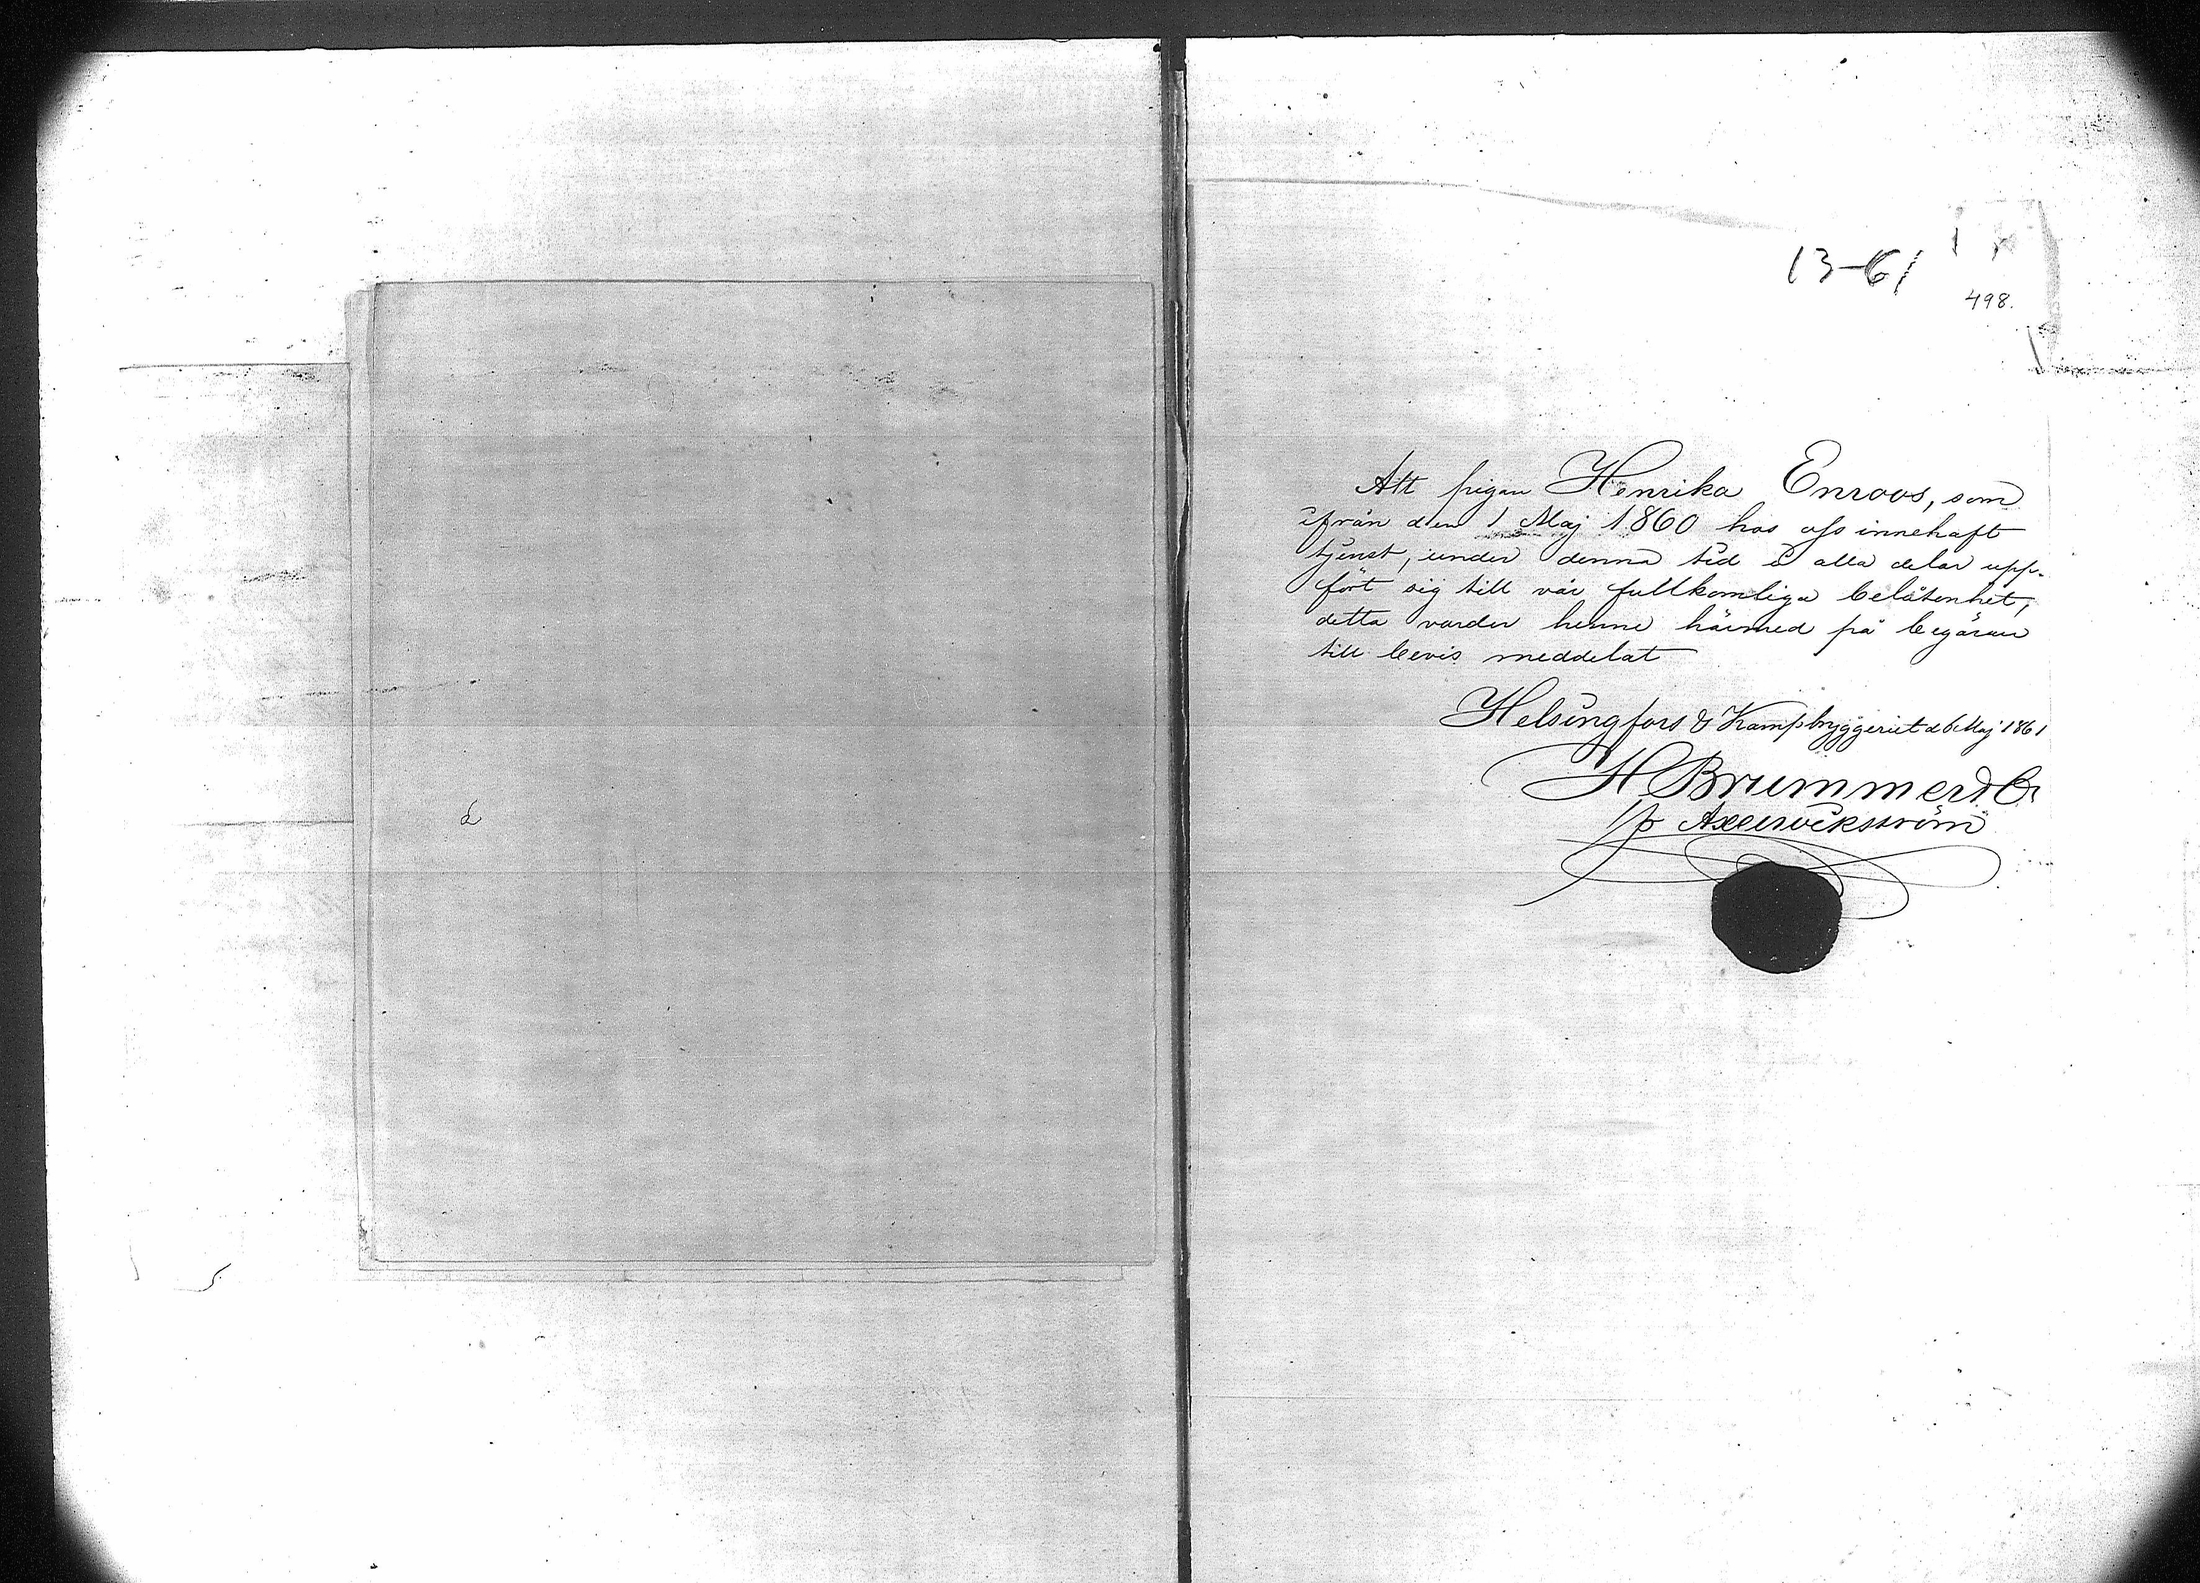 13-61
498.
Att pigan Henrika Enroos, som
ifrån den 1 Maj 1860 hos oss innehaft
tjenst, under denna tid i alla delar upp-
fört sig till vår fullkomliga belåtenhet,
detta varder henne härmed på begäran
till bevis meddelat
Helsingfors & Kampbryggeriet d 6 Maj 1861
H Brummer & Co